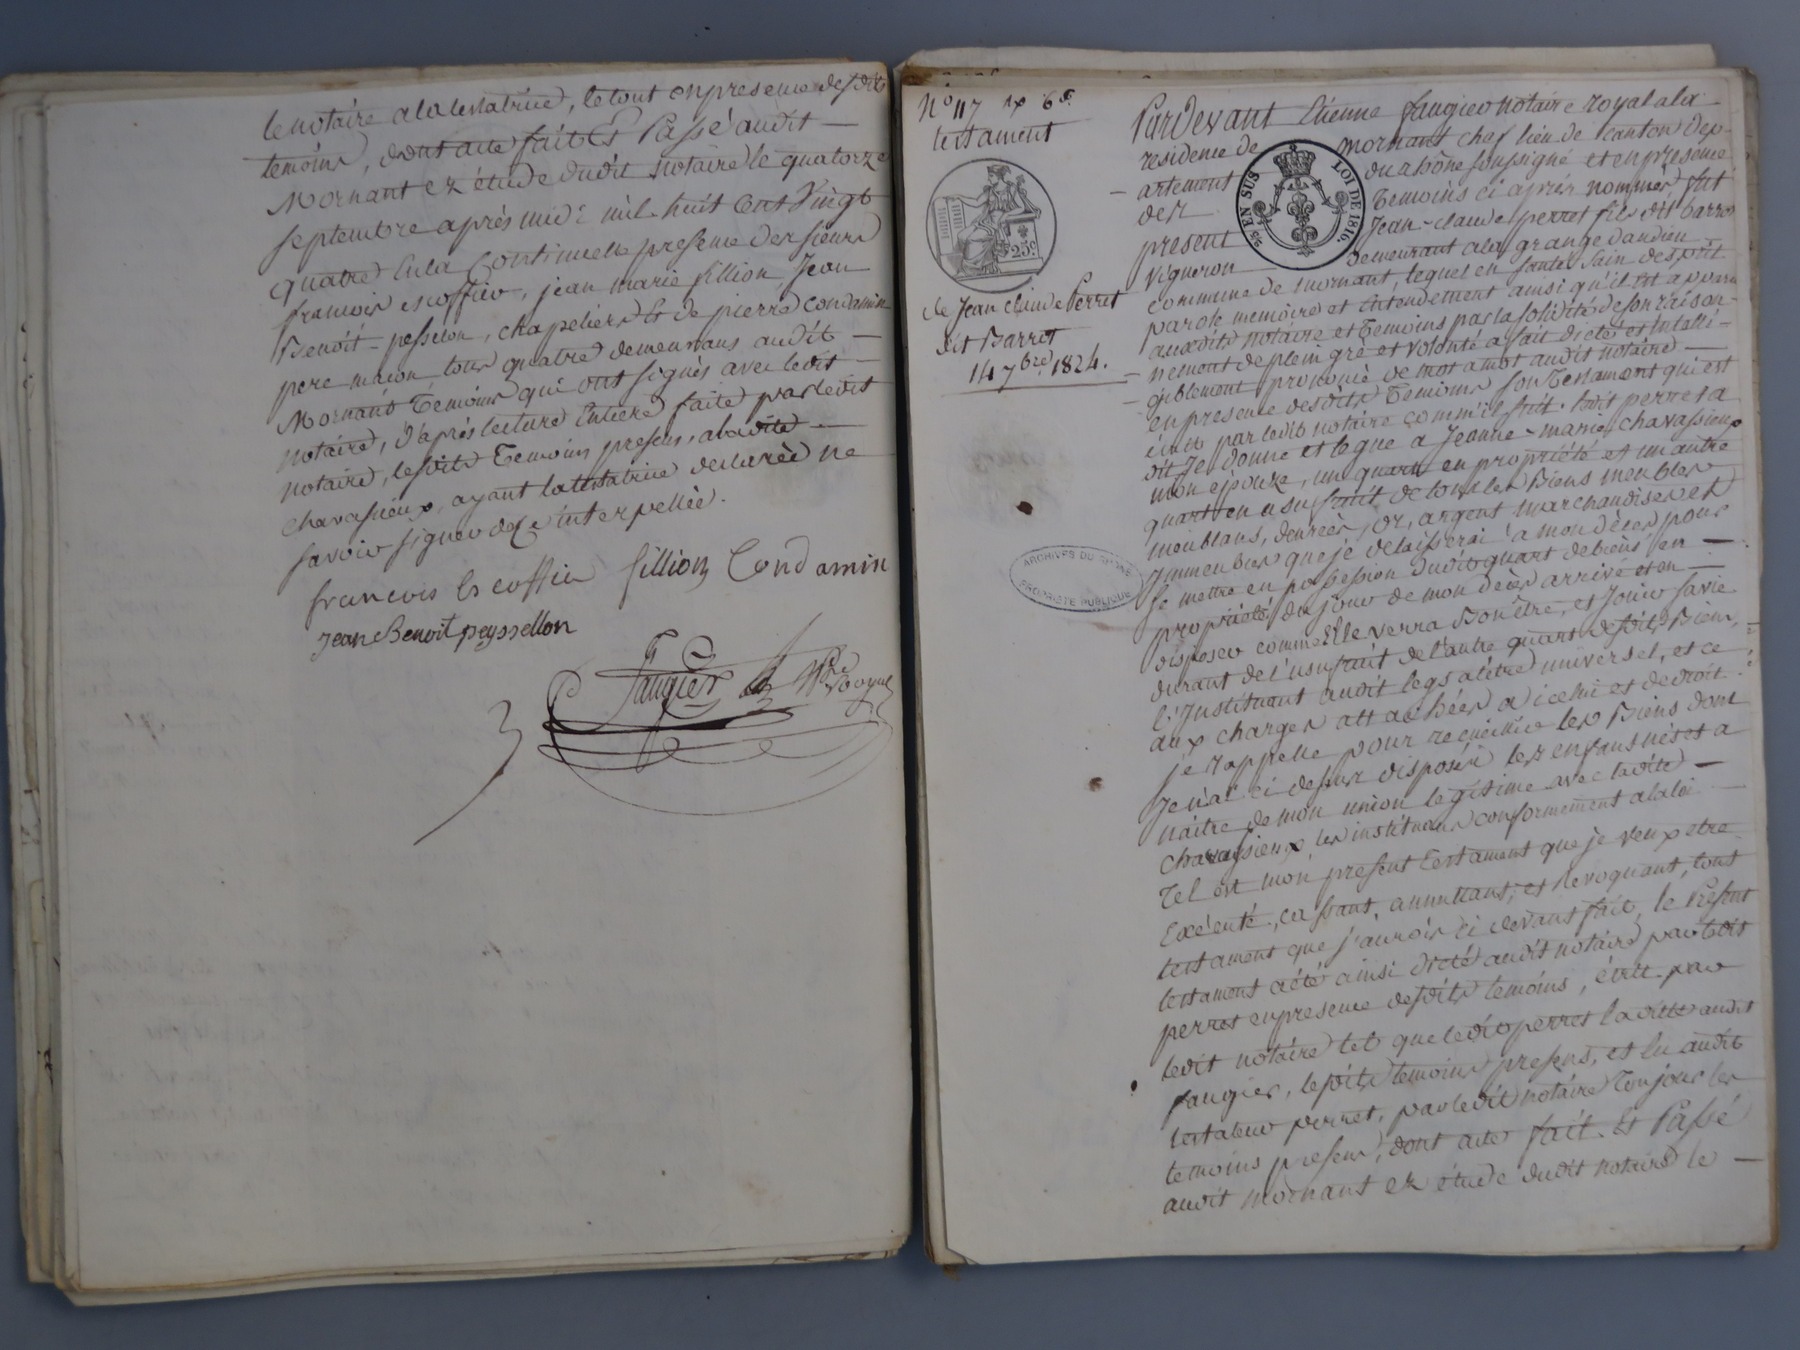 le notaire a la testatrice, le tout en presence desdits
temoins, dont acte fait Et Passé audit —
Mornant ez étude dudit notaire le quatorze
septembre après midi mil huit Cent Vingt
quatre En la Continuelle presence des sieurs
francois escoffier, jean marie fillion, Jean
Benoit peyssellon, chapeliers Et de pierre condamin
pere macon, tous quatre demeurans audit —
Mornant Temoins qui ont signés avec ledit —
notaire, d'après lecture Entiere faite par ledit
notaire, lesdits Temoins presens, a ladite —
chavassieux, ayant la testatrice declarée ne
savoir signer de ce interpellée.
francois Escoffier fillion Condamin
Jean Benoit peyssellon
faugier Nre Royal
N° 117
testament
25c
de Jean Claude Perret
dit Barret
14 7bre 1824.
ARCHIVES DU RHONE
PROPRIÉTÉ PUBLIQUE
25 EN SUS LOI DE 1816.
Pardevant Etienne faugier notaire royal a la
residence de Mornant chef lieu de canton dep-
artement du rhône soussigné et en presence
des Temoins ci après nommés fut
present Jean-claude perret fils dit barret
vigneron demeurant a la grange dandieu
commune de mornant, lequel en santé sain desprit
parole memoire et Entendement ainsi qu'il Est apparu
auxdits notaire et Temoins par la solidité de son raison-
nement de plein gré et volonté a fait dicté et Intelli-
giblement prononcé de mot a mot audit notaire —
en presence desdits Temoins son Testament qui est
écrit par ledit notaire comm'il suit. ledit perret a
dit Je donne et legue a Jeanne-marie chavassieux
mon epouze, un quart en propriété et un autre
quart en usufruit de tous les Biens meubles
meublans, denrées, or, argent marchandises et
Immeubles que je delaisserai a mon décès pour
se mettre en possession dudit quart de biens en —
propriété du jour de mon décès arrivé et en —
disposer comme Elle verra Bon être, et Jouir sa vie
durant de l'usufruit de l'autre quart desdits Biens,
l'Instituant audit legs a titre universel, et ce
aux charges attachées a icelui et de droit.
je rappelle pour recueillir les Biens dont
Je n'ai ci dessus disposé les enfans nés et a
naitre de mon union legitime avec ladite —
chavassieux, les instituans conformement a la loi
Tel est mon present testament que je veux etre
Exécuté, cassant, annullans, et revoquant, tout
testament que j'aurois ci devans fait, le Present
testament a été ainsi dicté audit notaire par ledit
perret en presence desdits temoins, écrit par
ledit notaire tel que ledit perret la dicté audit
faugier, lesdits temoins presens, et lu audit
testateur perret, par ledit notaire Toujour les
temoins presens, dont acte fait Et Passé
audit mornant ez étude dudit notaire le —